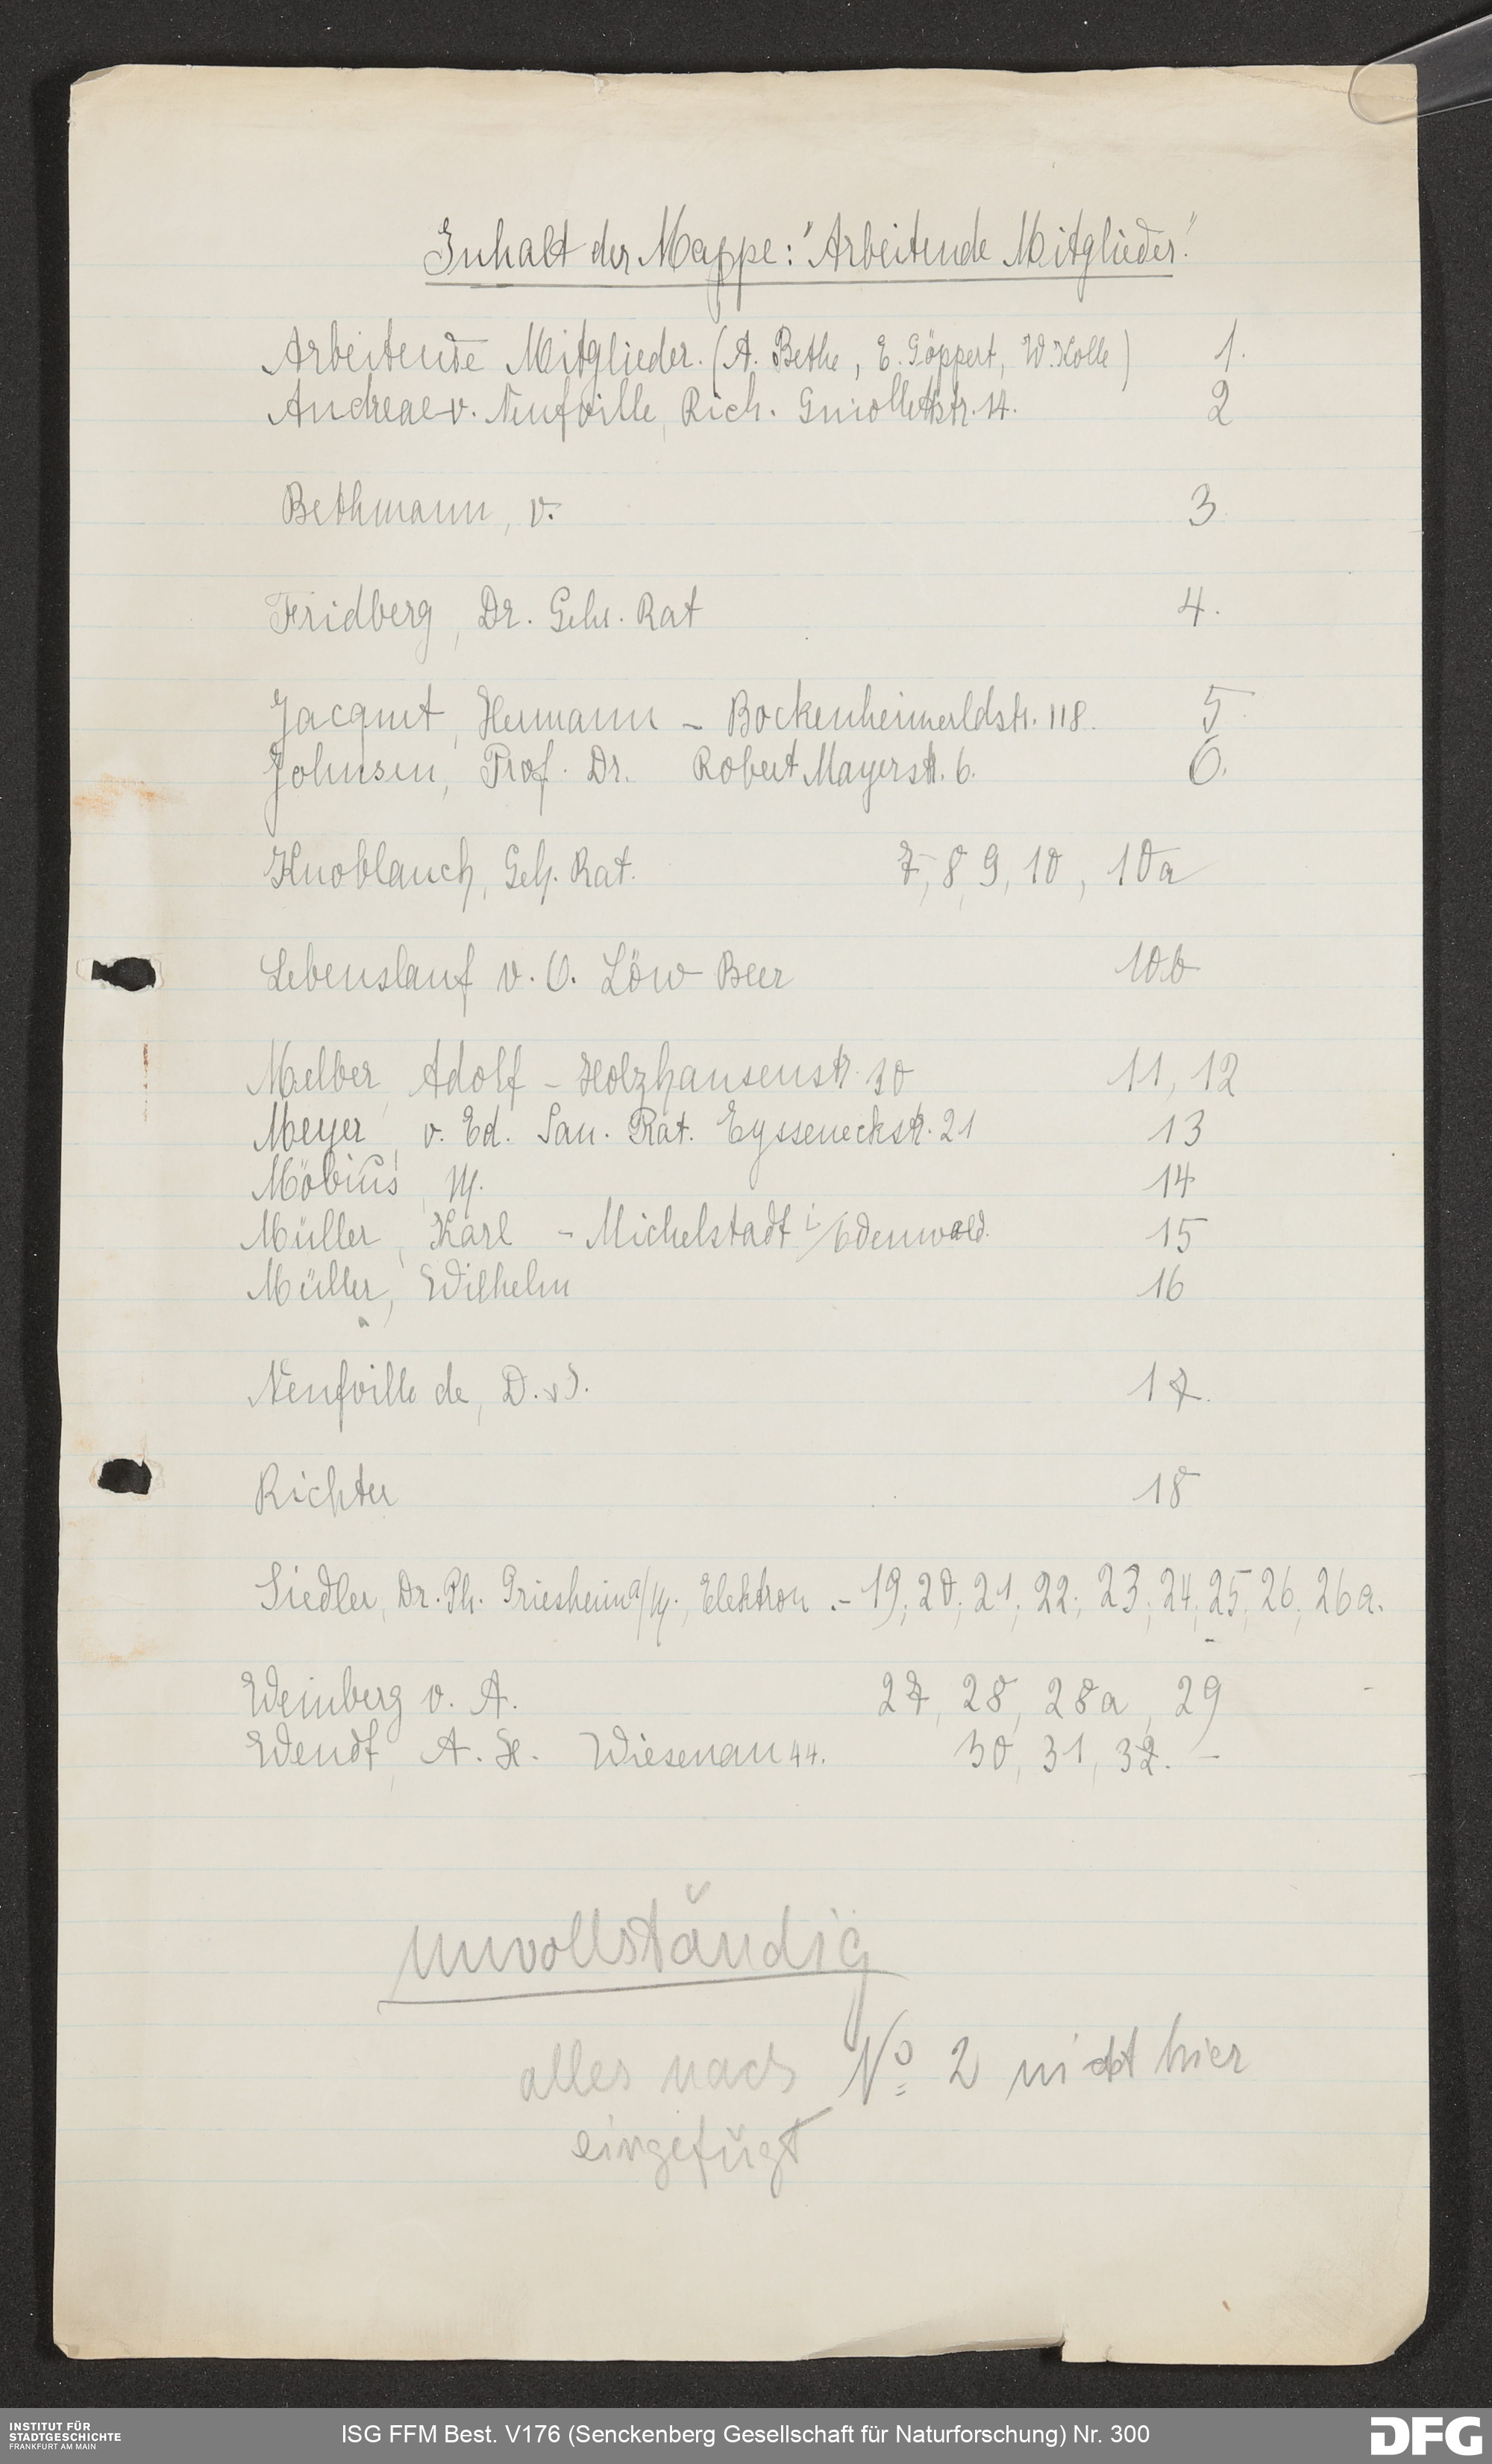 Inhalt der Mappe: "Arbeitende Mitglieder."
Arbeitende Mitglieder. (A. Bethe, E. Göppert, W. Kolle) 1.
Andreae v. Neufville, Rich. Guiollettstr. 14. 2
Bethmann, v. 3
Fridberg, Dr. Geh. Rat 4.
Jacquet, Hermann - Bockenheimerldstr. 118. 5
Johnsen, Prof. Dr. Robert Mayerstr. 6. 6.
Knoblauch, Geh. Rat. 7, 8, 9, 10, 10a
Lebenslauf v. O. Löw Beer 10b
Melber, Adolf - Holzhausenstr. 30 11, 12
Meyer, v. Ed. San. Rat. Eysseneckstr. 21 13
Möbius, M. 14
Müller, Karl - Michelstadt i/Odenwald. 15
Müller, Wilhelm 16
Neufville de, D. 17.
Richter 18
Siedler, Dr. Ph. Griesheim a/M., Elektron .- 19, 20, 21, 22, 23, 24, 25, 26, 26a.
Weinberg v. A. 27, 28, 28a, 29
Wendt, A. H. Wiesenau 44. 30, 31, 32. -
unvollständig
alles nach No 2 nicht hier
eingefügt
INSTITUT FÜR
STADTGESCHICHTE
FRANKFURT AM MAIN
ISG FFM Best. V176 (Senckenberg Gesellschaft für Naturforschung) Nr. 300
DFG